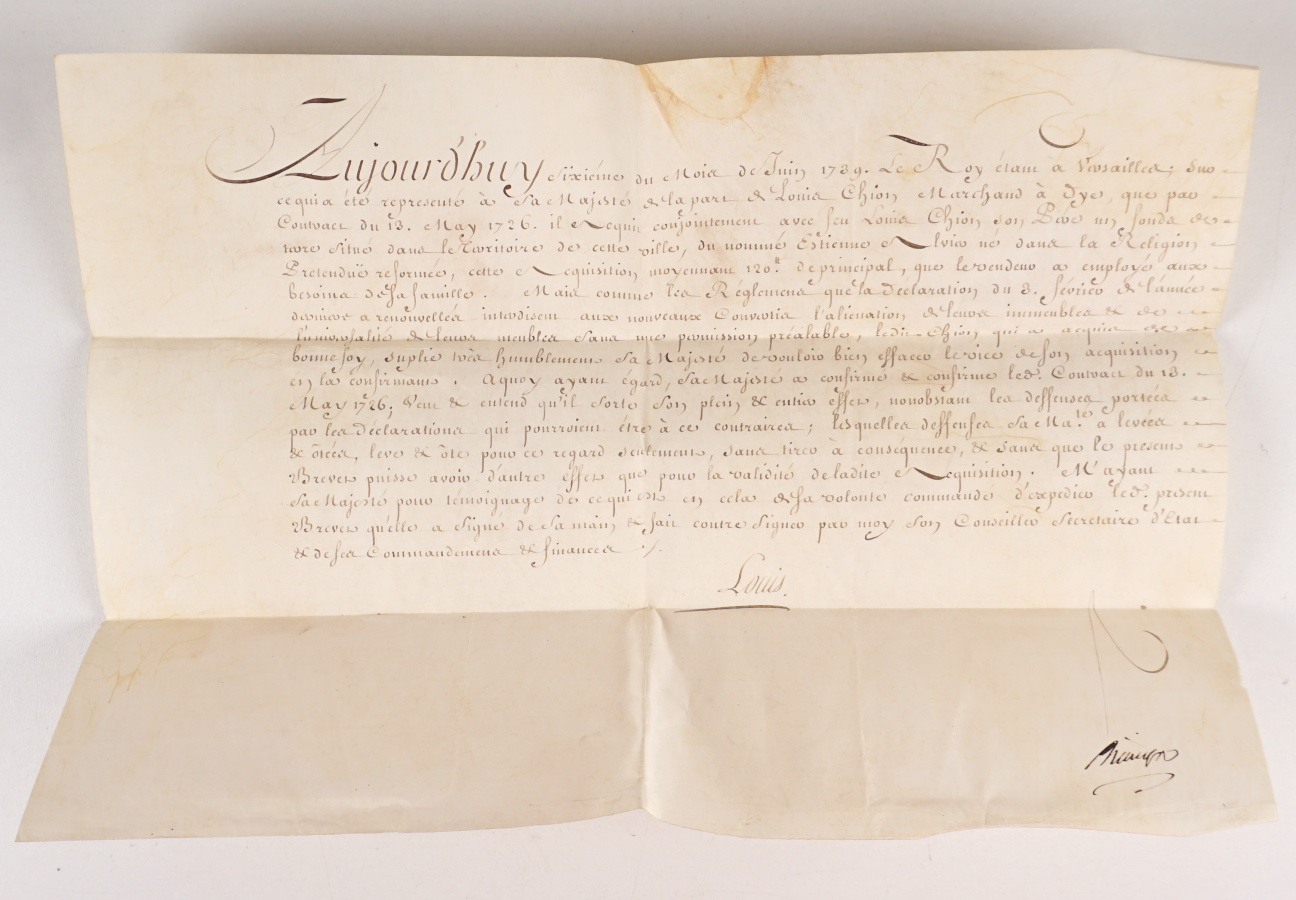 Aujourd'huy sixiéme du Mois de Juin 1739. Le Roy étant à Versailles; Sur
ce qui a été representé à Sa Majesté de la part de Louis Chion Marchand à Dye, que par
Contract du 13. May 1726. il Acquit conjointement avec feu Louis Chion son Pere un fonds de
terre situé dans le Territoire de cette ville, du nommé Estienne né dans la Religion
Pretenduë reformée, cette Acquisition moyennant 120.ᵗᵗ de principal, que le vendeur a employé aux
besoins de sa famille. Mais comme les Réglemens que la Declaration du 3. février de l'année
derniere a renouvellés interdisent aux nouveaux Convertis l'alienation de leurs immeubles & de
l'universalité de leurs meubles sans une permission préalable, ledit Chion qui a acquis de
bonne foy, suplie très humblement Sa Majesté de vouloir bien effacer le vice de son acquisition
en la confirmant. Aquoy ayant égard, Sa Majesté a confirmé & confirme led.ᵗ Contract du 13.
May 1726; Veut & entend qu'il sorte son plein & entier effet, nonobstant les deffenses portées
par les déclarations qui pourroient être à ce contraires; lesquelles deffenses Sa Ma.ᵗᵉ a levées
& ôtées, leve & ôte pour ce regard seulement, sans tirer à conséquence, & sans que le present
Brevet puisse avoir d'autre effet que pour la validité de ladite Acquisition. M'ayant
Sa Majesté pour témoignage de ce qui est en cela de sa volonté commandé d'expedier led.ᵗ present
Brevet qu'elle a signé de sa main & fait contresigner par moy son Conseiller Secretaire d'Etat
& de ses Commandemens & finances ./.
Louis.